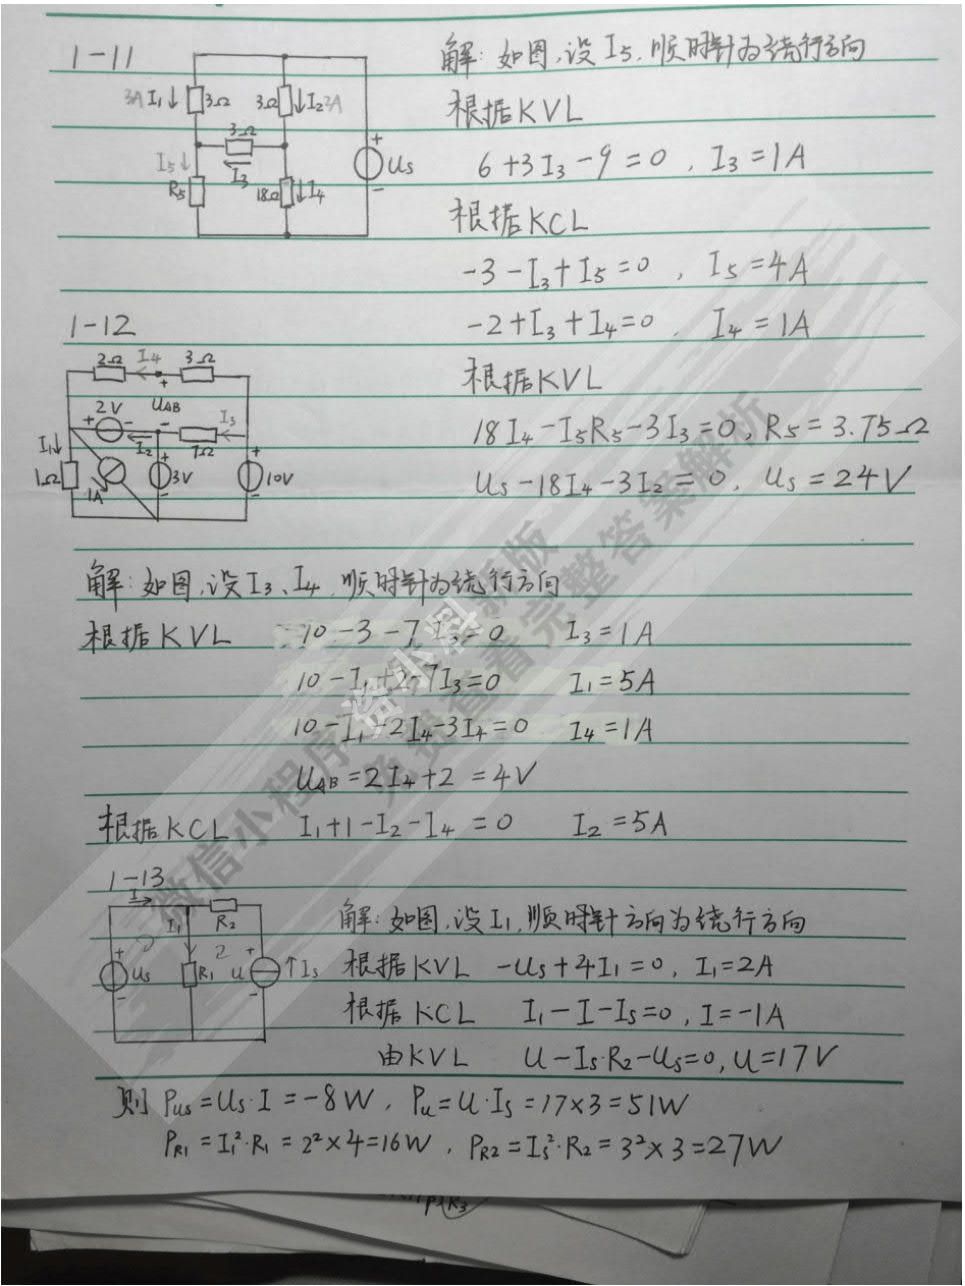 1-11
3A I₁↓ 3Ω 3Ω ↓I₂ 2A
3Ω
I₅↓ I₃ + Us
R₅ 18Ω ↓I₄ -
解: 如图,设I₅,顺时针为绕行方向
根据KVL
6+3I₃-9=0, I₃=1A
根据KCL
-3-I₃+I₅=0, I₅=4A
-2+I₃+I₄=0, I₄=1A
根据KVL
18I₄-I₅R₅-3I₃=0, R₅=3.75Ω
Us-18I₄-3I₂=0, Us=24V
1-12
2Ω I₄ 3Ω
+
2V UAB I₃
+ - - I₂ 7Ω
I₁↓ + +
1Ω 1A 3V 10V
- -
解: 如图,设I₃、I₄,顺时针为绕行方向
根据KVL 10-3-7I₃=0 I₃=1A
10-I₁+2-7I₃=0 I₁=5A
10-I₁-2I₄-3I₄=0 I₄=1A
UAB=2I₄+2=4V
根据KCL I₁+1-I₂-I₄=0 I₂=5A
1-13
I
I₁ R₂
+ 2 +
Us R₁ u ↑Is
- -
解: 如图,设I₁,顺时针方向为绕行方向
根据KVL -Us+4I₁=0, I₁=2A
根据KCL I₁-I-Is=0, I=-1A
由KVL U-Is·R₂-Us=0, U=17V
则 Pus=Us·I=-8W, Pu=U·Is=17×3=51W
PR1=I₁²·R₁=2²×4=16W, PR2=Is²·R₂=3²×3=27W
微信小程序
免费查看完整答案解析